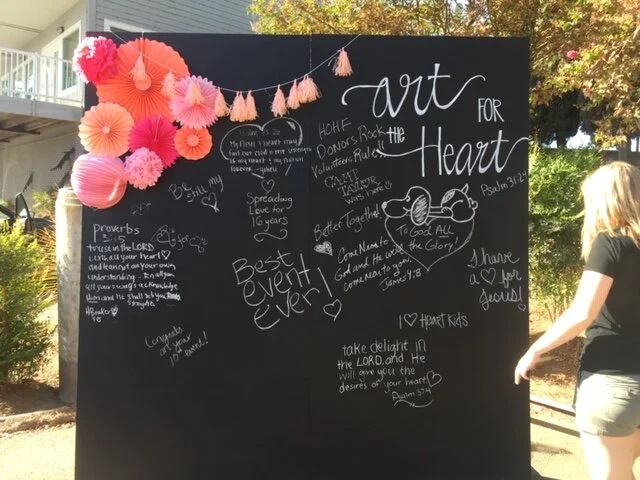 art FOR
the Heart
Psalm 31:24
HOHF
DONORS Rock
Volunteers Rule!!
CALEB
TAYLOR
was here
Psalm 73:26
My flesh & heart may
fail but God is the strength
of my heart & my portion
forever
Be still my
Spreading
Love for
16 years
Better Together
To God ALL
the Glory!
Come Near to
God and He will
come near to you.
James 4:8
Proverbs
3:5
trust in the LORD
with all your heart
and lean not on your own
understanding. In all your
all your ways acknowledge
Him and He shall
straight
Best
event
ever!
I have
a for
Jesus!
I HEART KIDS
Congrats
on your
10th event!
take delight in
the LORD, and He
will give you the
desires of your heart
Psalm 37:4